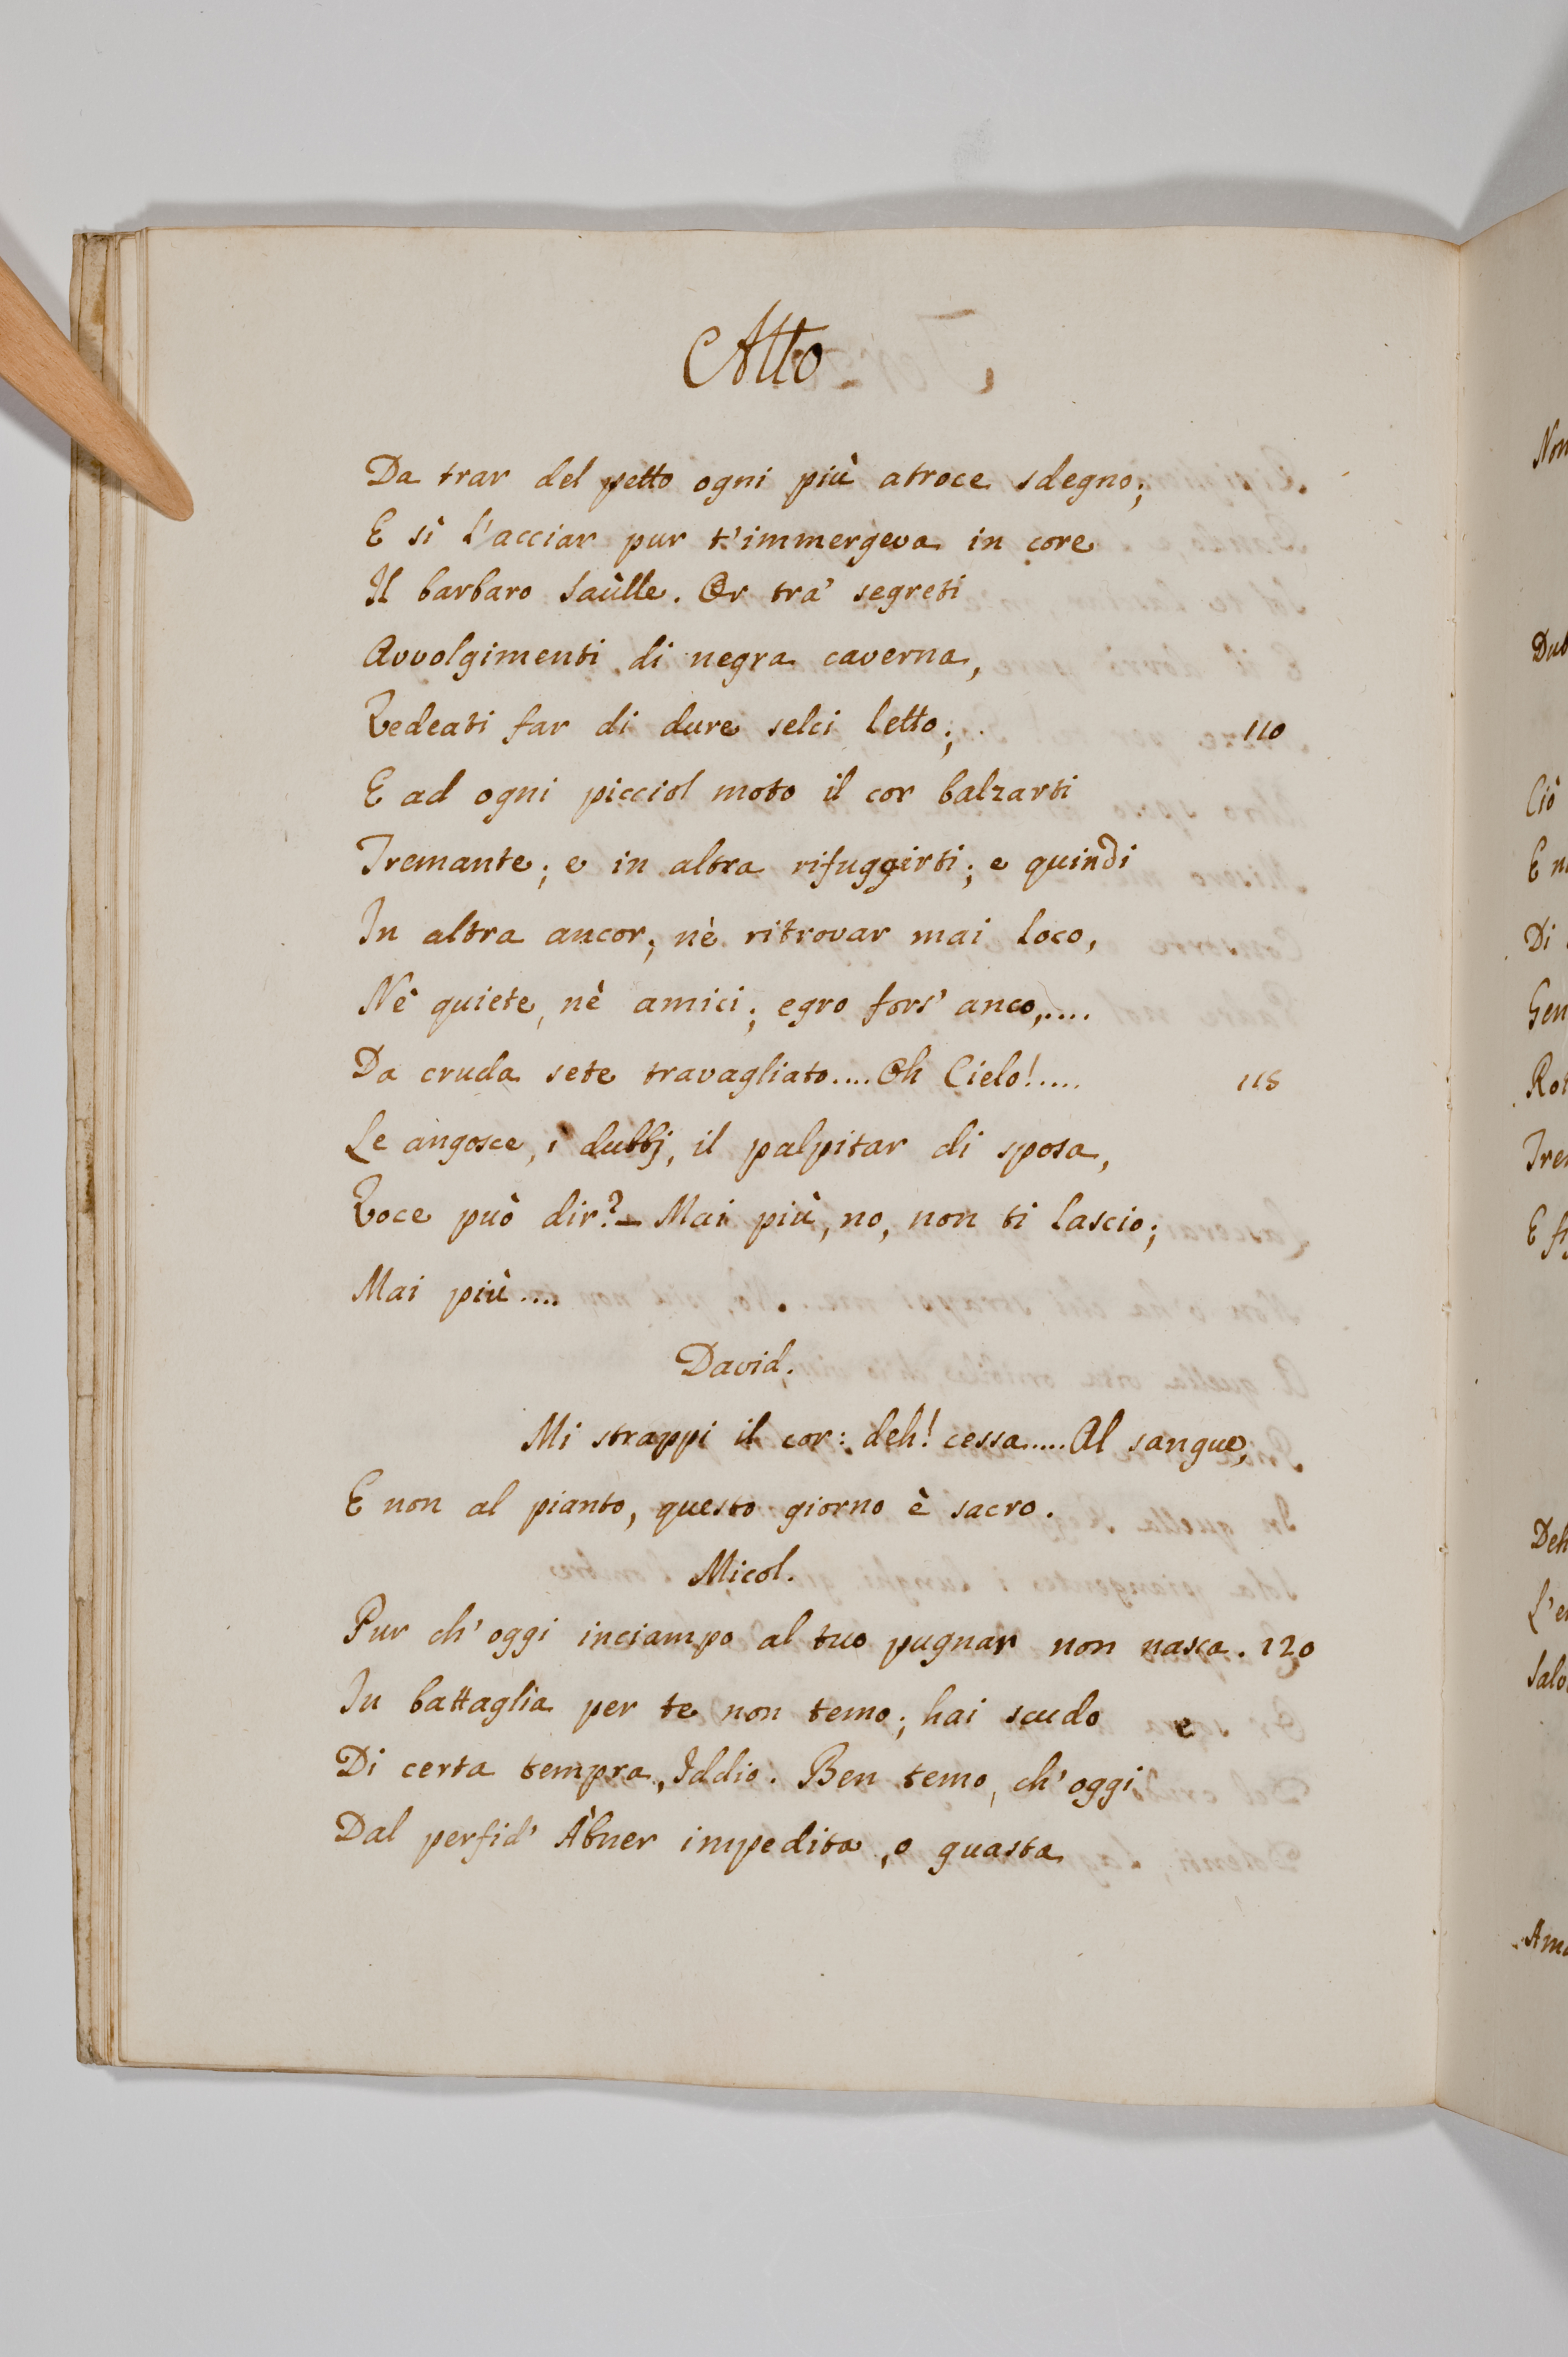 Atto
Da trar del petto ogni più atroce sdegno;
E sì l'acciar pur t'immergeva in core
Il barbaro Saùlle. Or tra' segreti
Avvolgimenti di negra caverna,
Vedeati far di dure selci letto; 110
E ad ogni picciol moto il cor balzarti
Tremante; e in altra rifuggirti; e quindi
In altra ancor; nè ritrovar mai loco,
Nè quiete, nè amici; egro fors' anco,....
Da cruda sete travagliato.... Oh Cielo!.... 115
Le angosce, i dubbj, il palpitar di sposa,
Voce può dir?— Mai più, no, non ti lascio;
Mai più....
David.
Mi strappi il cor: deh! cessa..... Al sangue,
E non al pianto, questo giorno è sacro.
Micol.
Pur ch'oggi inciampo al tuo pugnar non nasca. 120
In battaglia per te non temo; hai scudo
Di certa tempra, Iddio. Ben temo, ch'oggi
Dal perfid' Àbner impedita, o guasta
Non
Ciò
Di